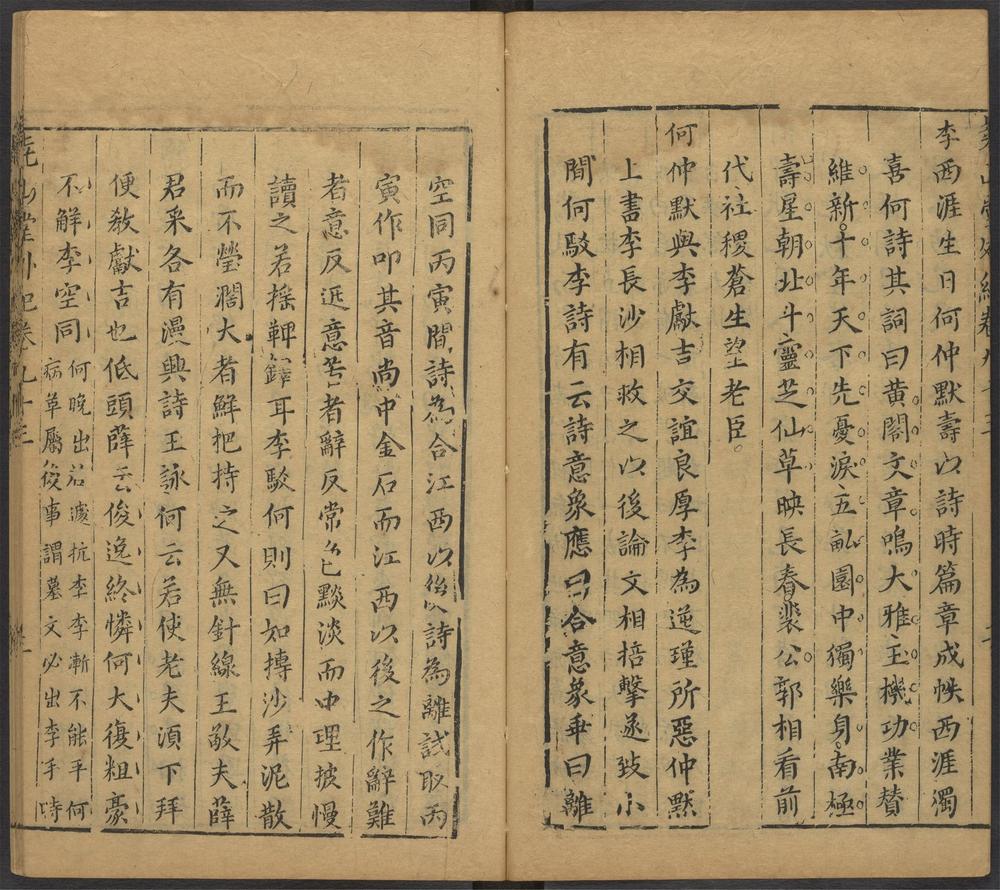 李西涯生日何仲默壽以詩時篇章成帙西涯濁
喜何詩其詞曰黃閣文章鳴大雅玉機功業贊
維新十年天下先憂淚五畝園中獨樂身南極
壽星朝北斗靈芝仙草映長春裴公郭相看前
代社稷蒼生望老臣
何仲默與李獻吉交誼良厚李為逆瑾所惡仲默
上書李長沙相救之以後論文相掊擊遂致小
間何駁李詩有云詩意象應曰合意象乖曰離
空同丙寅間詩為合江西以後詩為離試取丙
寅作叩其音尚中金石而江西以後之作辭難
者意反近意苦者辭反常色黯淡而中理披慢
讀之若搖鞞鐸耳李駁何則曰如摶沙弄泥散
而不瑩濶大者鮮把持之又無針線王敬夫薛
君采各有漫興詩王詠何云若使老夫須下拜
便教獻吉也低頭薛云俊逸終憐何大復粗豪
不解李空同 何晚出若遽抗李李漸不能平何
病草屬後事謂墓文必出李手時